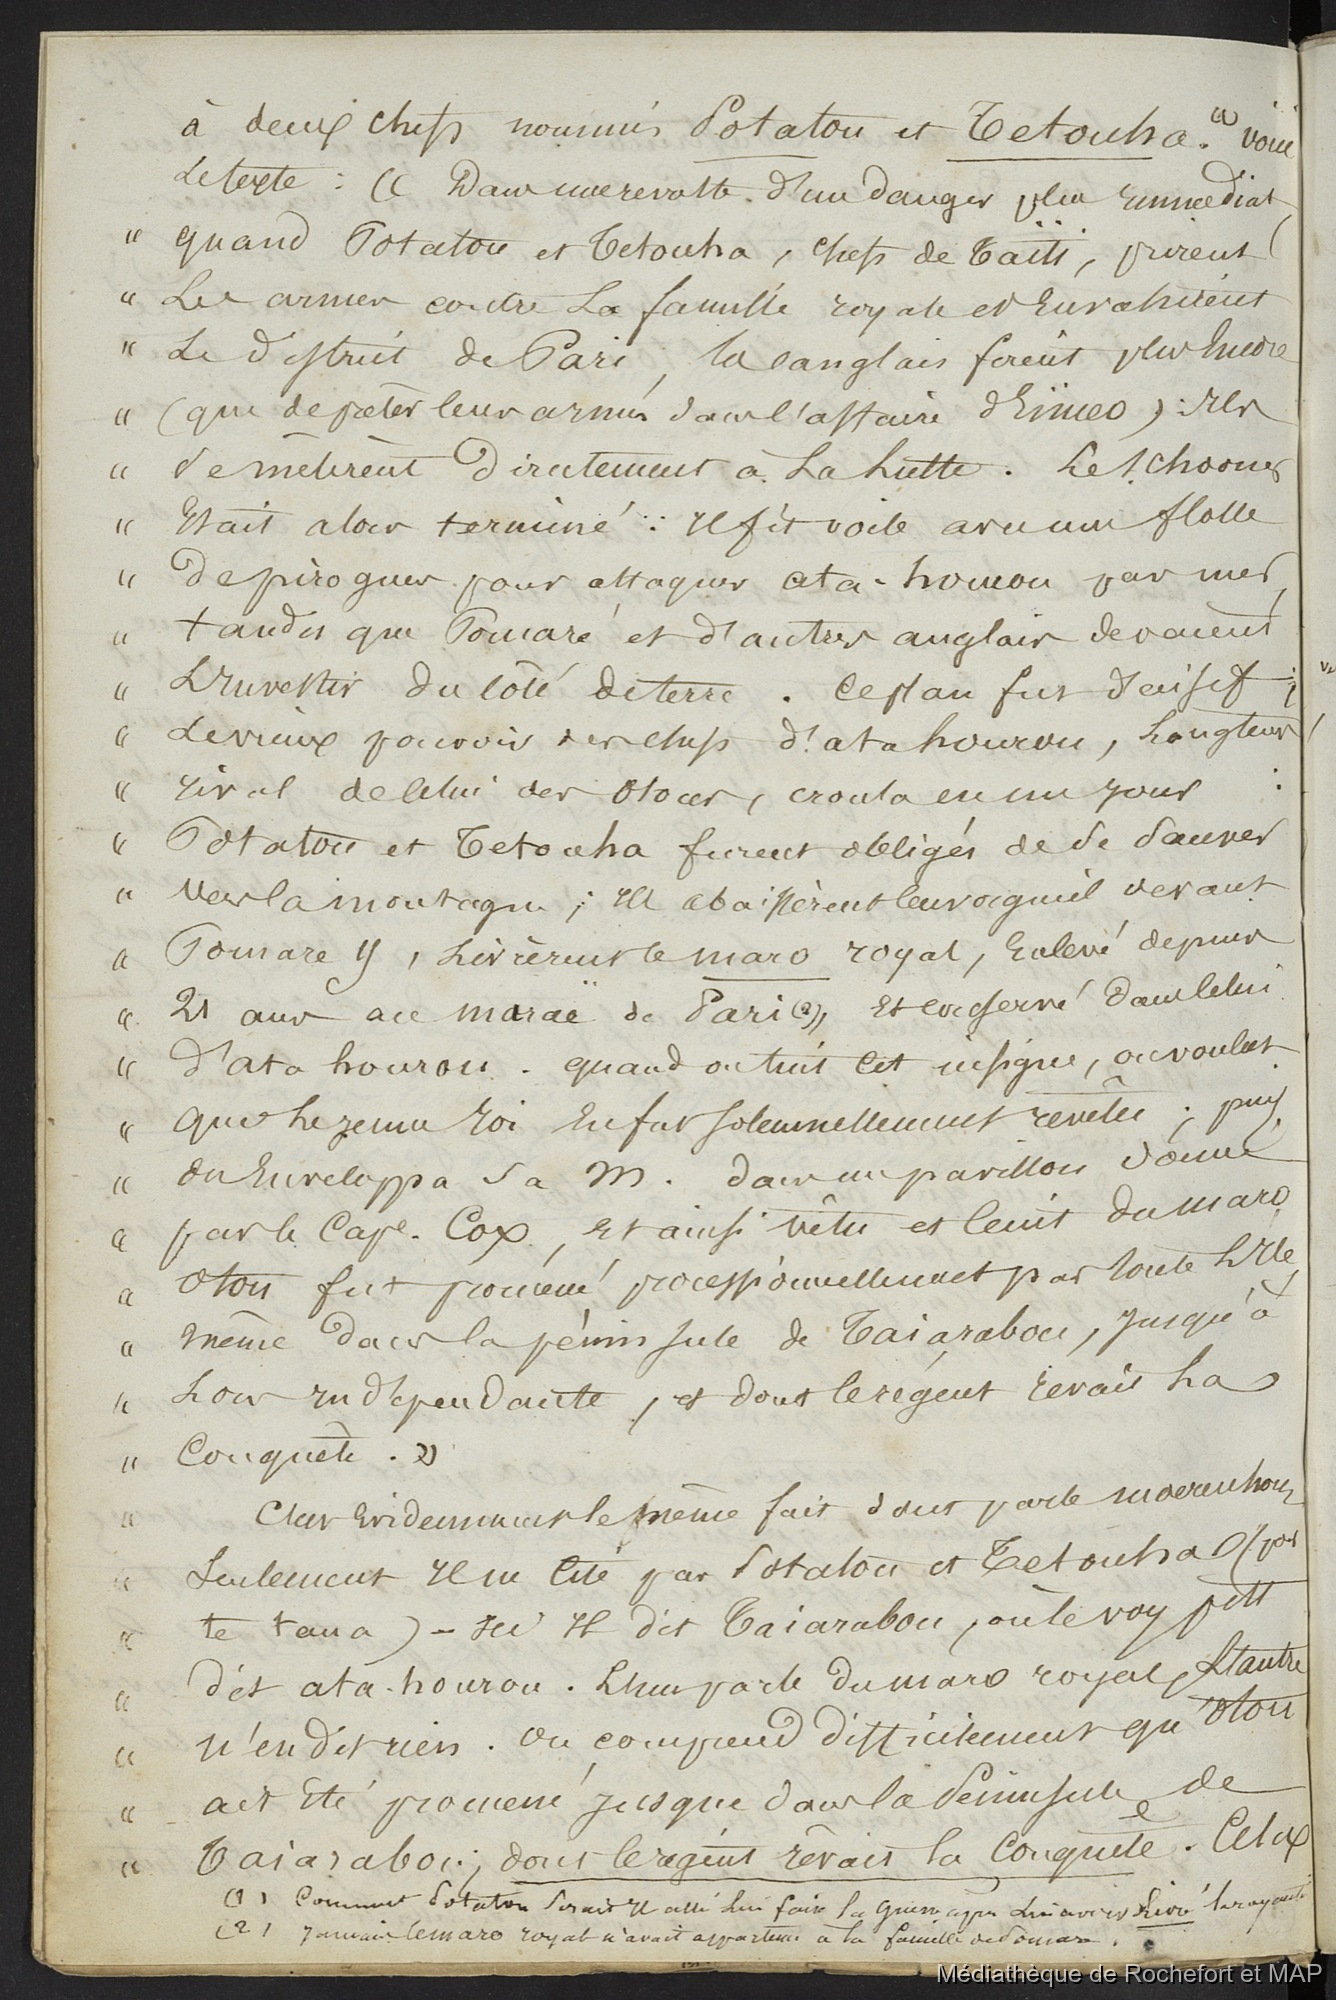 à deux chefs nommés Potatou et Tetouha. (1) voici
le texte : « Dans une revolte d'un danger plus immediat,
" quand Potatou et Tetouha, chefs de Taïti, prirent
" Les armes contre La famille royale et Envahirent
" Le district de Pari, les anglais firent plus Encore
" (que de prêter leurs armes dans l'affaire d'Eïmeo) : Ils
" se mêlèrent Directement à La Lutte. Le Schooner
" Etait alors terminé : Il fit voile avec une flotte
" De pirogues pour attaquer ata-hourou par mer,
" tandis que Pomaré et d'autres anglais devaient
" L'Investir du Côté de terre. Ce plan fut décisif ;
" Le vieux pouvoir des chefs d'atahourou, Longtems
" rival de Celui des Otoos, croula en un jour :
" Potatou et Tetouha furent obligés de se sauver
" Vers la montagne ; Ils abaissèrent leur orgueil devant
" Pomare II, Livrèrent le maro royal, Enlevé depuis
" 21 ans au maraë de Pari (2), Et conservé dans Celui
" d'ata hourou. quand on tint Cet insigne, on voulut
" que Le jeune roi En fut solennellement revêtu ; puis
" on Enveloppa S a M. dans un pavillon donné
" par le Cape. Cox, Et ainsi vêtu et Ceint du maro
" Otou fut promené processionnellement par toute L'Ile,
" même dans la péninsule de Taiarabou, jusqu'à
" Lors Independante, et dont le régent rêvait La
" Conquête. »
" C'est Evidemment le même fait dont parle moerenhout
" Seulement Il ne Cite pas Potatou et Tetouha (pas
" te tana) - Ici Il dit Taiarabou, où le voy. pitt
" dit ata-hourou. L'un parle du maro royal, L'autre
" n'en dit rien. On comprend difficilement qu'Otou
" ait Eté promené jusque dans la Péninsule de
" Taiarabou ; dont le régent rêvait la Conquête. Celux
(1) Comment Potatou serait Il allé Lui faire la guerre après Lui avoir Livré la royauté
(2) Jamais le maro royal n'avait appartenu à la famille de Pomare.
Médiathèque de Rochefort et MAP